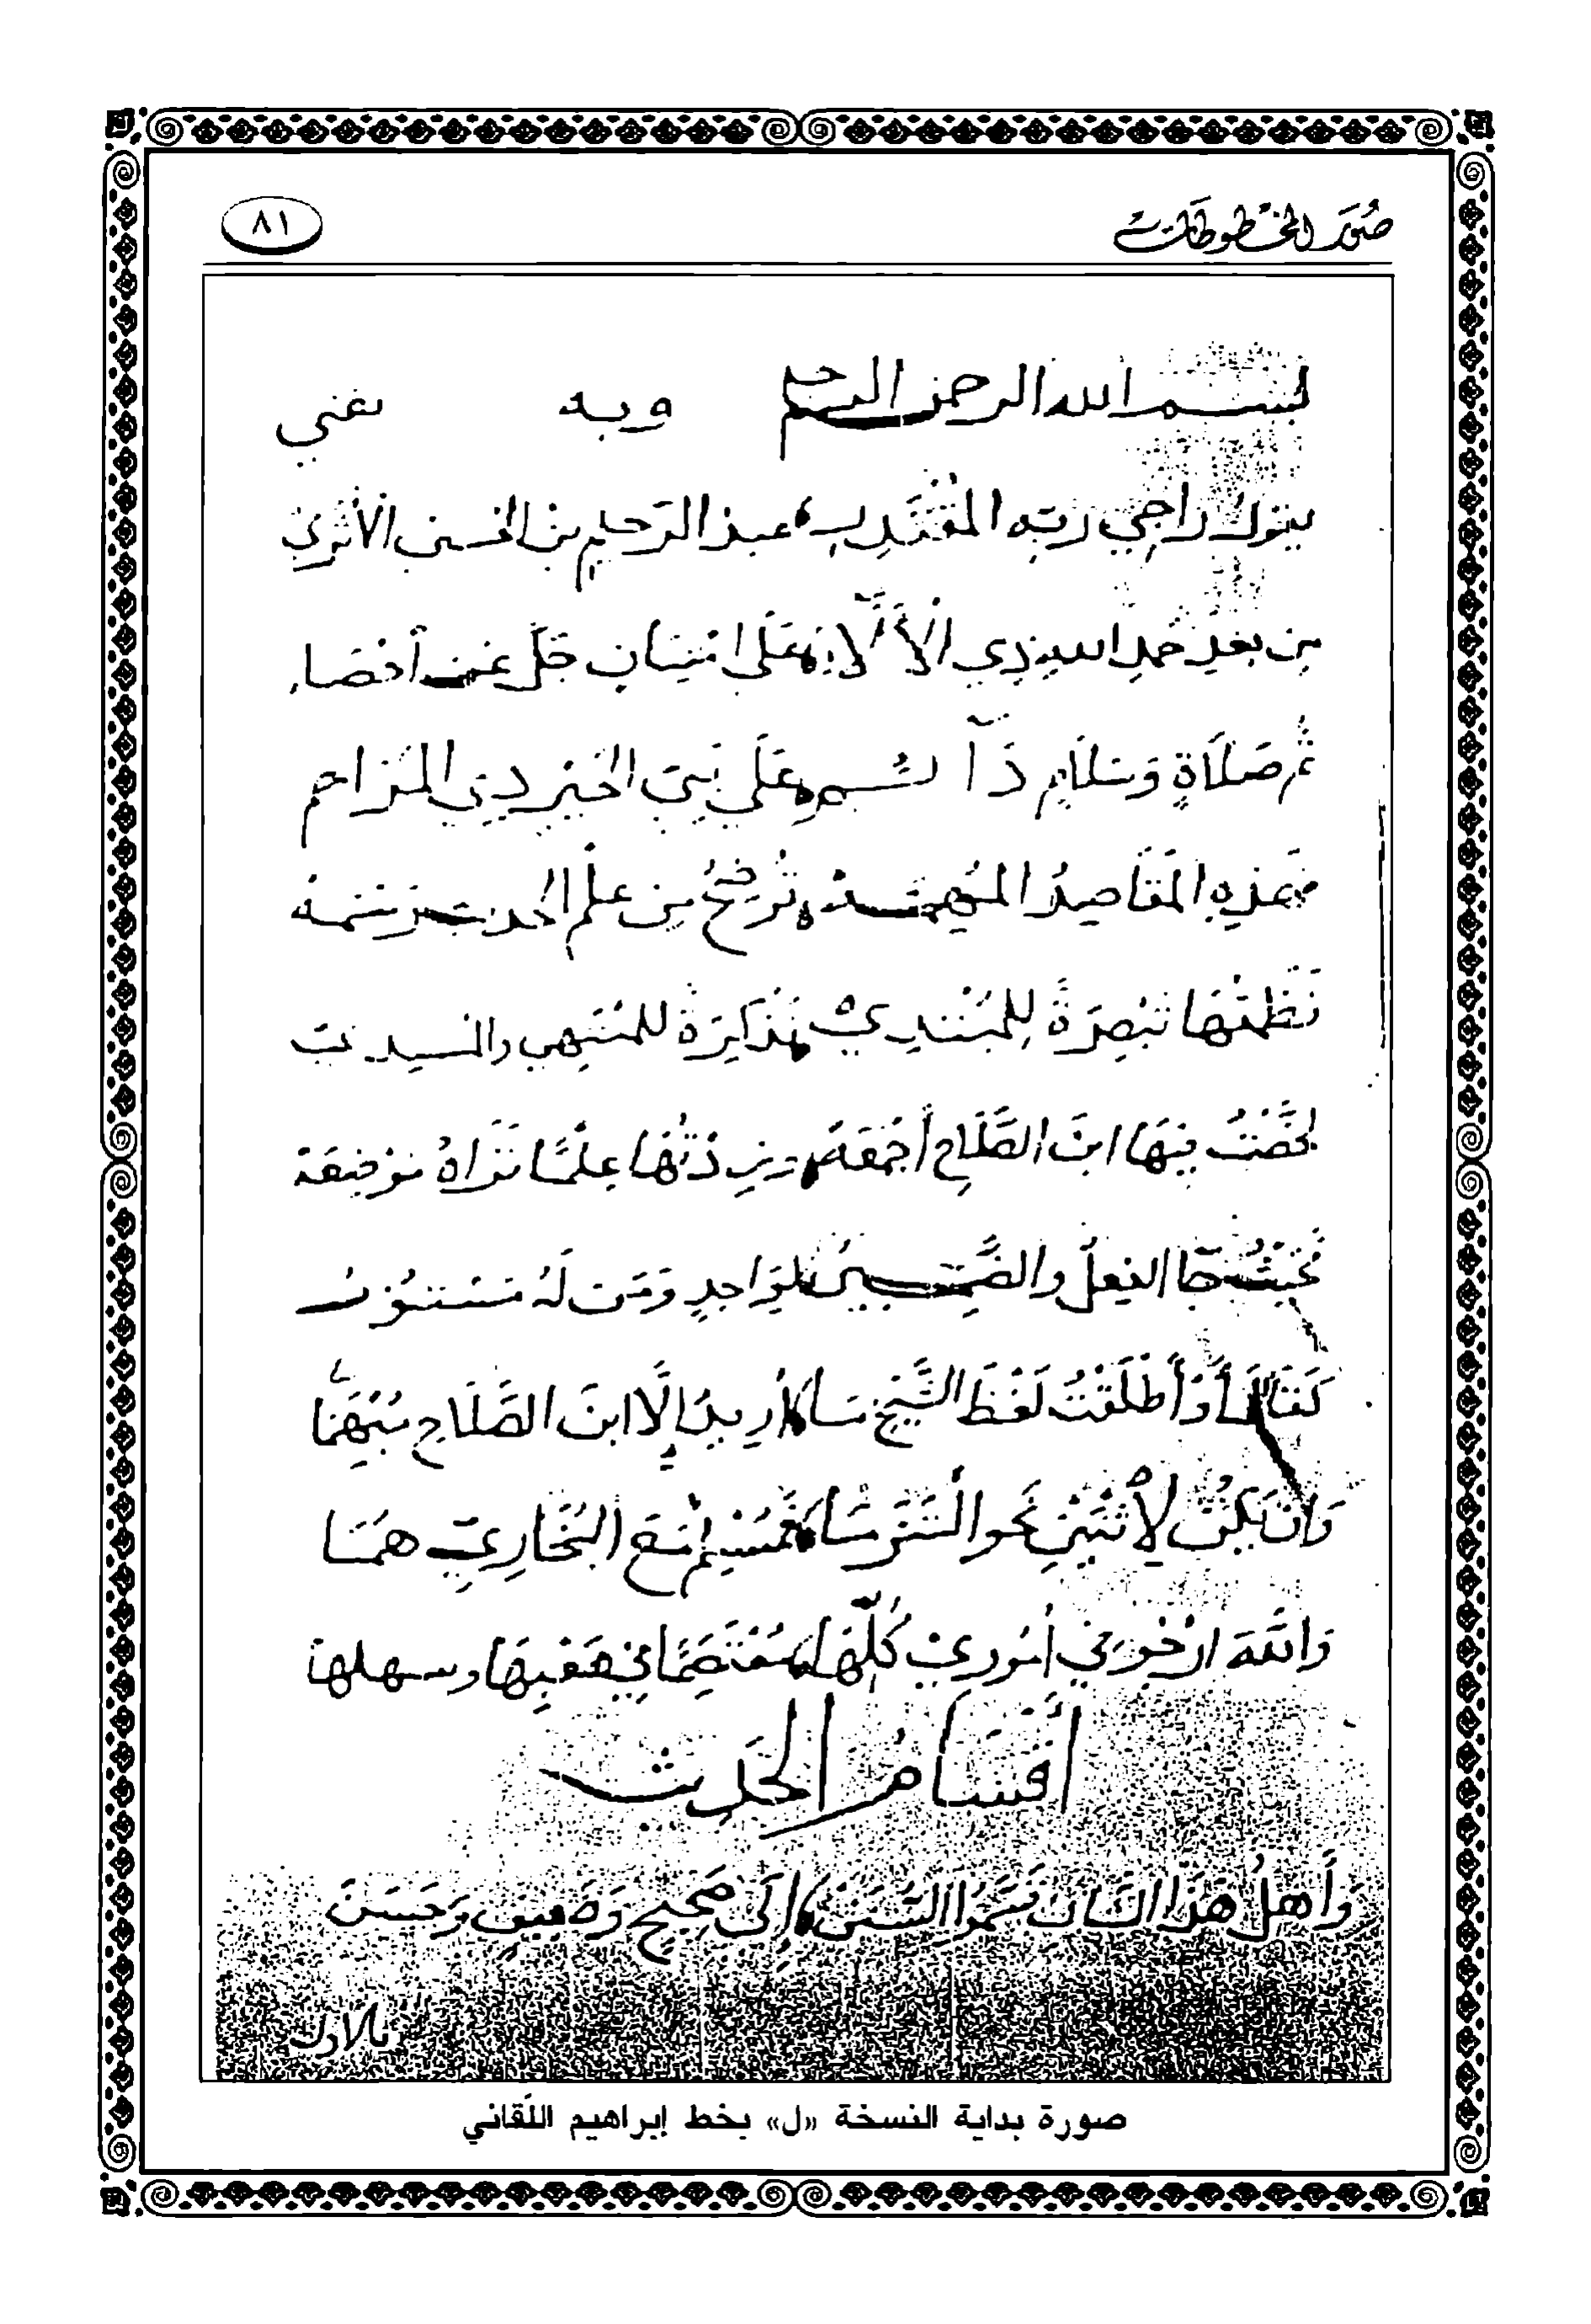 صور المخطوطات
٨١
بسم الله الرحمن الرحيم وبه
يقول راجي ربه المقتدر عبد الرحيم بن الحسين الأثري
من بعد حمد الله ذي الآلاء على امتنان جل عن احصاء
ثم صلاة وسلام دائم على نبي الخير ذي المراحم
فهذه المقاصد المهمه توضح من علم الحديث رسمه
نظمتها تبصرة للمبتدي تذكرة للمنتهي والمسند
لخصت فيها ابن الصلاح أجمعه وزدتها علما تراه موضعه
فحيث جا الفعل والضمير لواحد ومن له مستور
كقال أو أطلقت لفظ الشيخ ما أريد إلا ابن الصلاح مبهما
وان يكن لاثنين نحو التزما فمسلم مع البخاري هما
والله ارجو في أموري كلها معتصما في صعبها وسهلها
أقسام الحديث
وأهل هذا الشان قسموا السنن إلى صحيح وضعيف وحسن
فالاول
صورة بداية النسخة «ل» بخط إبراهيم اللقاني